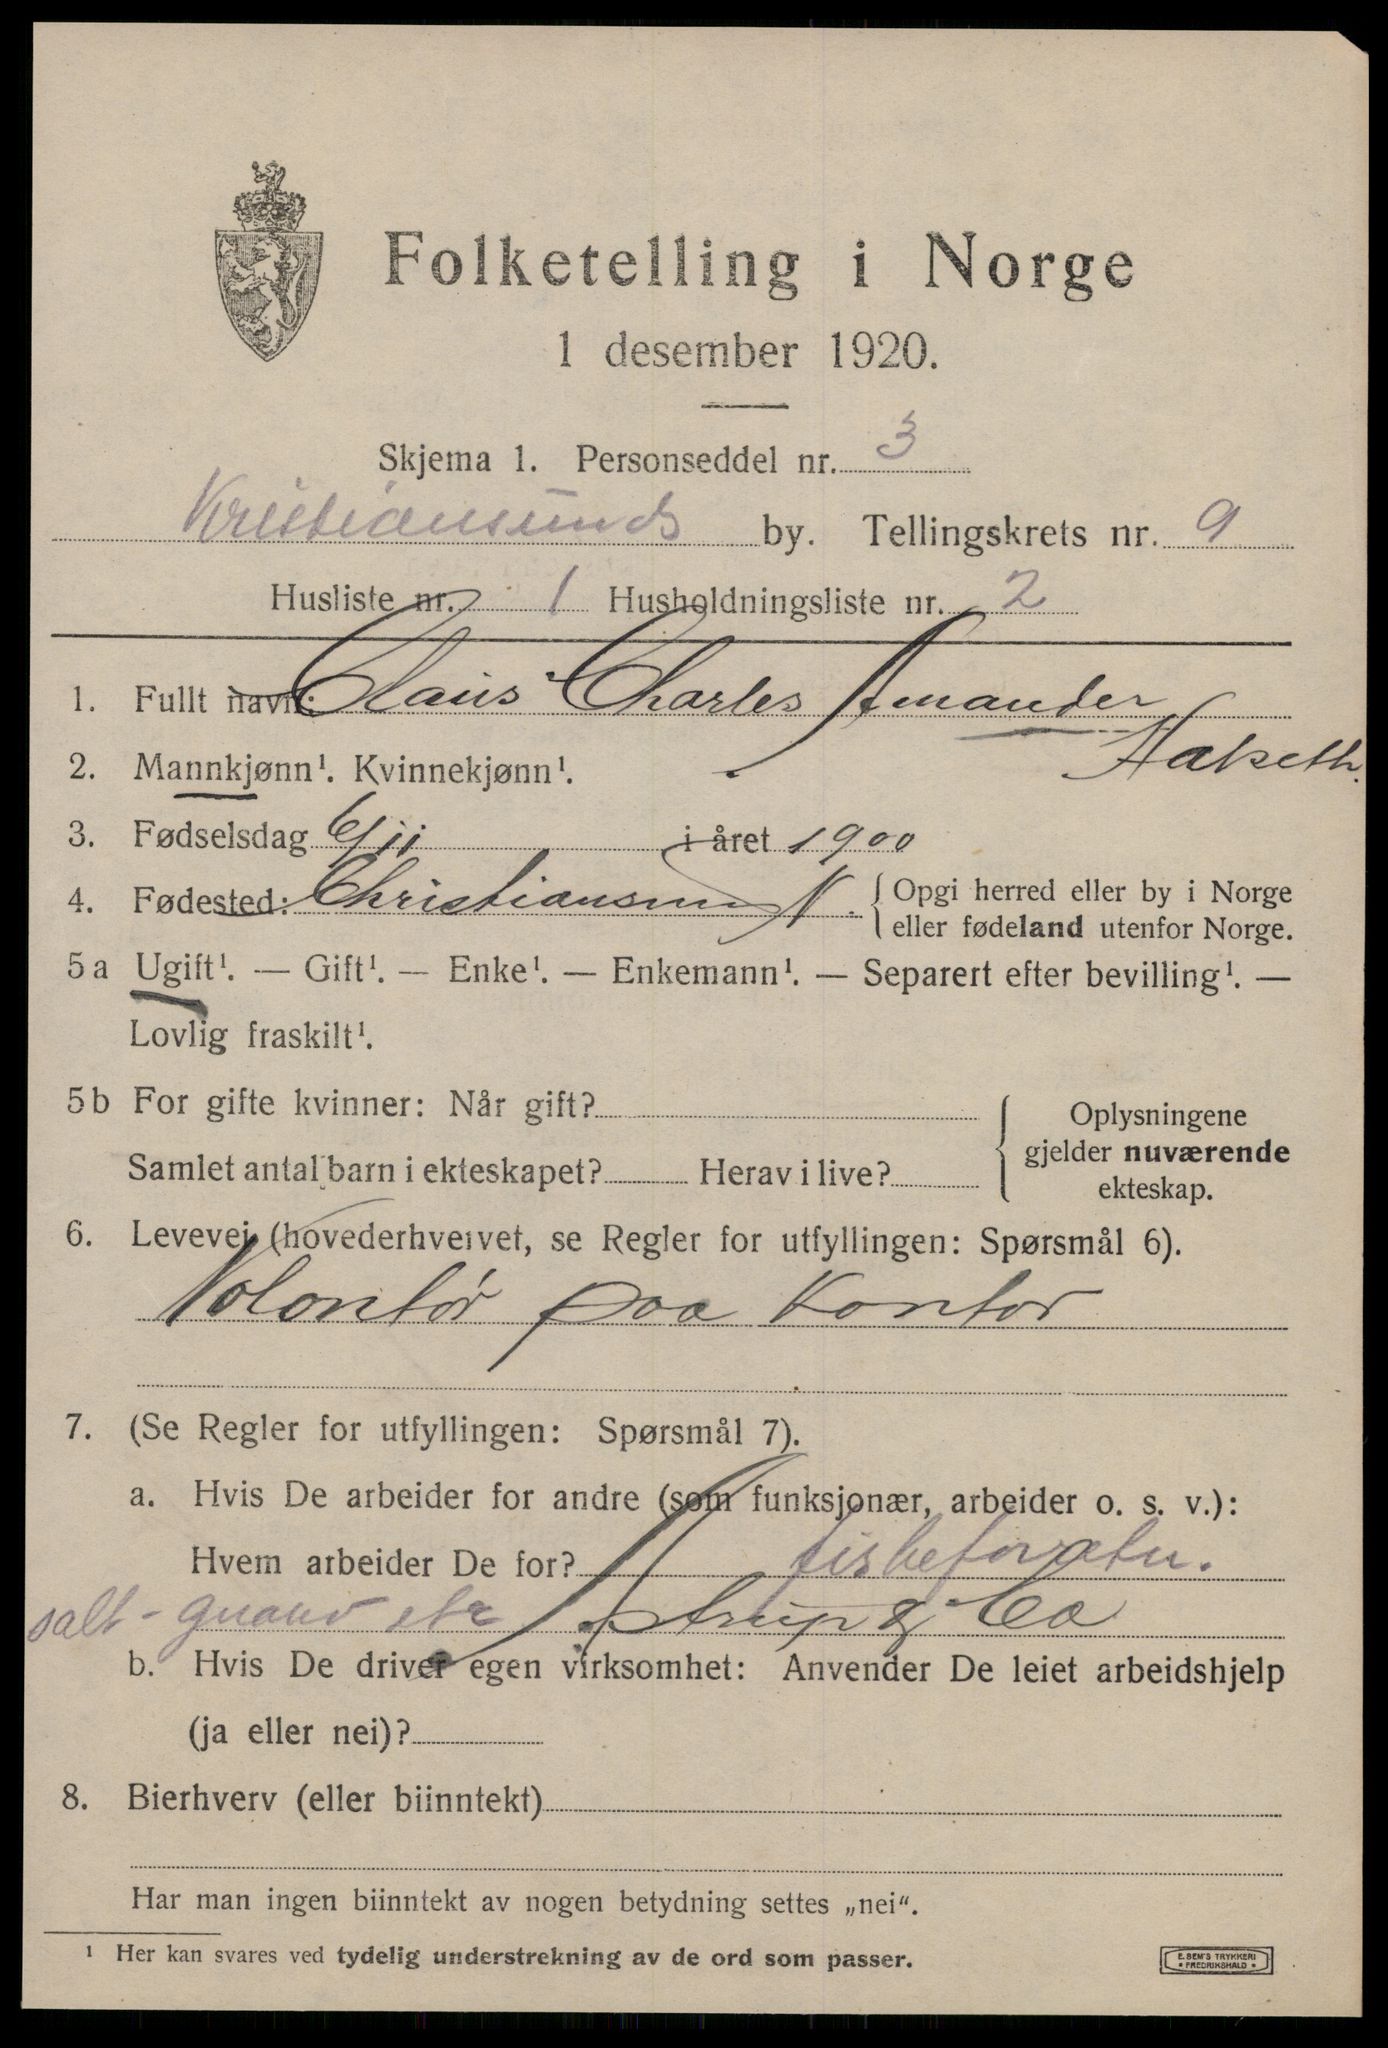 Folketelling i Norge
1 desember 1920.
Skjema 1. Personseddel nr. 3
Kristiansunds by. Tellingskrets nr. 9
Husliste nr. 1 Husholdningsliste nr. 2
1. Fullt navn: Claus Charles Amander
Hakseth.
2. Mannkjønn¹. Kvinnekjønn¹.
3. Fødselsdag 6/11 i året 1900
4. Fødested: Christiansund N. { Opgi herred eller by i Norge
eller fødeland utenfor Norge.
5a Ugift¹. — Gift¹. — Enke¹. — Enkemann¹. — Separert efter bevilling¹. —
Lovlig fraskilt¹.
5b For gifte kvinner: Når gift?
Samlet antal barn i ekteskapet? Herav i live?
Oplysningene
gjelder nuværende
ekteskap.
6. Levevei (hovederhvervet, se Regler for utfyllingen: Spørsmål 6).
Volontør paa Kontor
7. (Se Regler for utfyllingen: Spørsmål 7).
a. Hvis De arbeider for andre (som funksjonær, arbeider o. s. v.):
Hvem arbeider De for?
salt - guano etc Astrup & Co
b. Hvis De driver egen virksomhet: Anvender De leiet arbeidshjelp
(ja eller nei)?
8. Bierhverv (eller biinntekt)
Har man ingen biinntekt av nogen betydning settes „nei“.
¹ Her kan svares ved tydelig understrekning av de ord som passer.
E. SEM'S TRYKKERI
• FREDRIKSHALD •